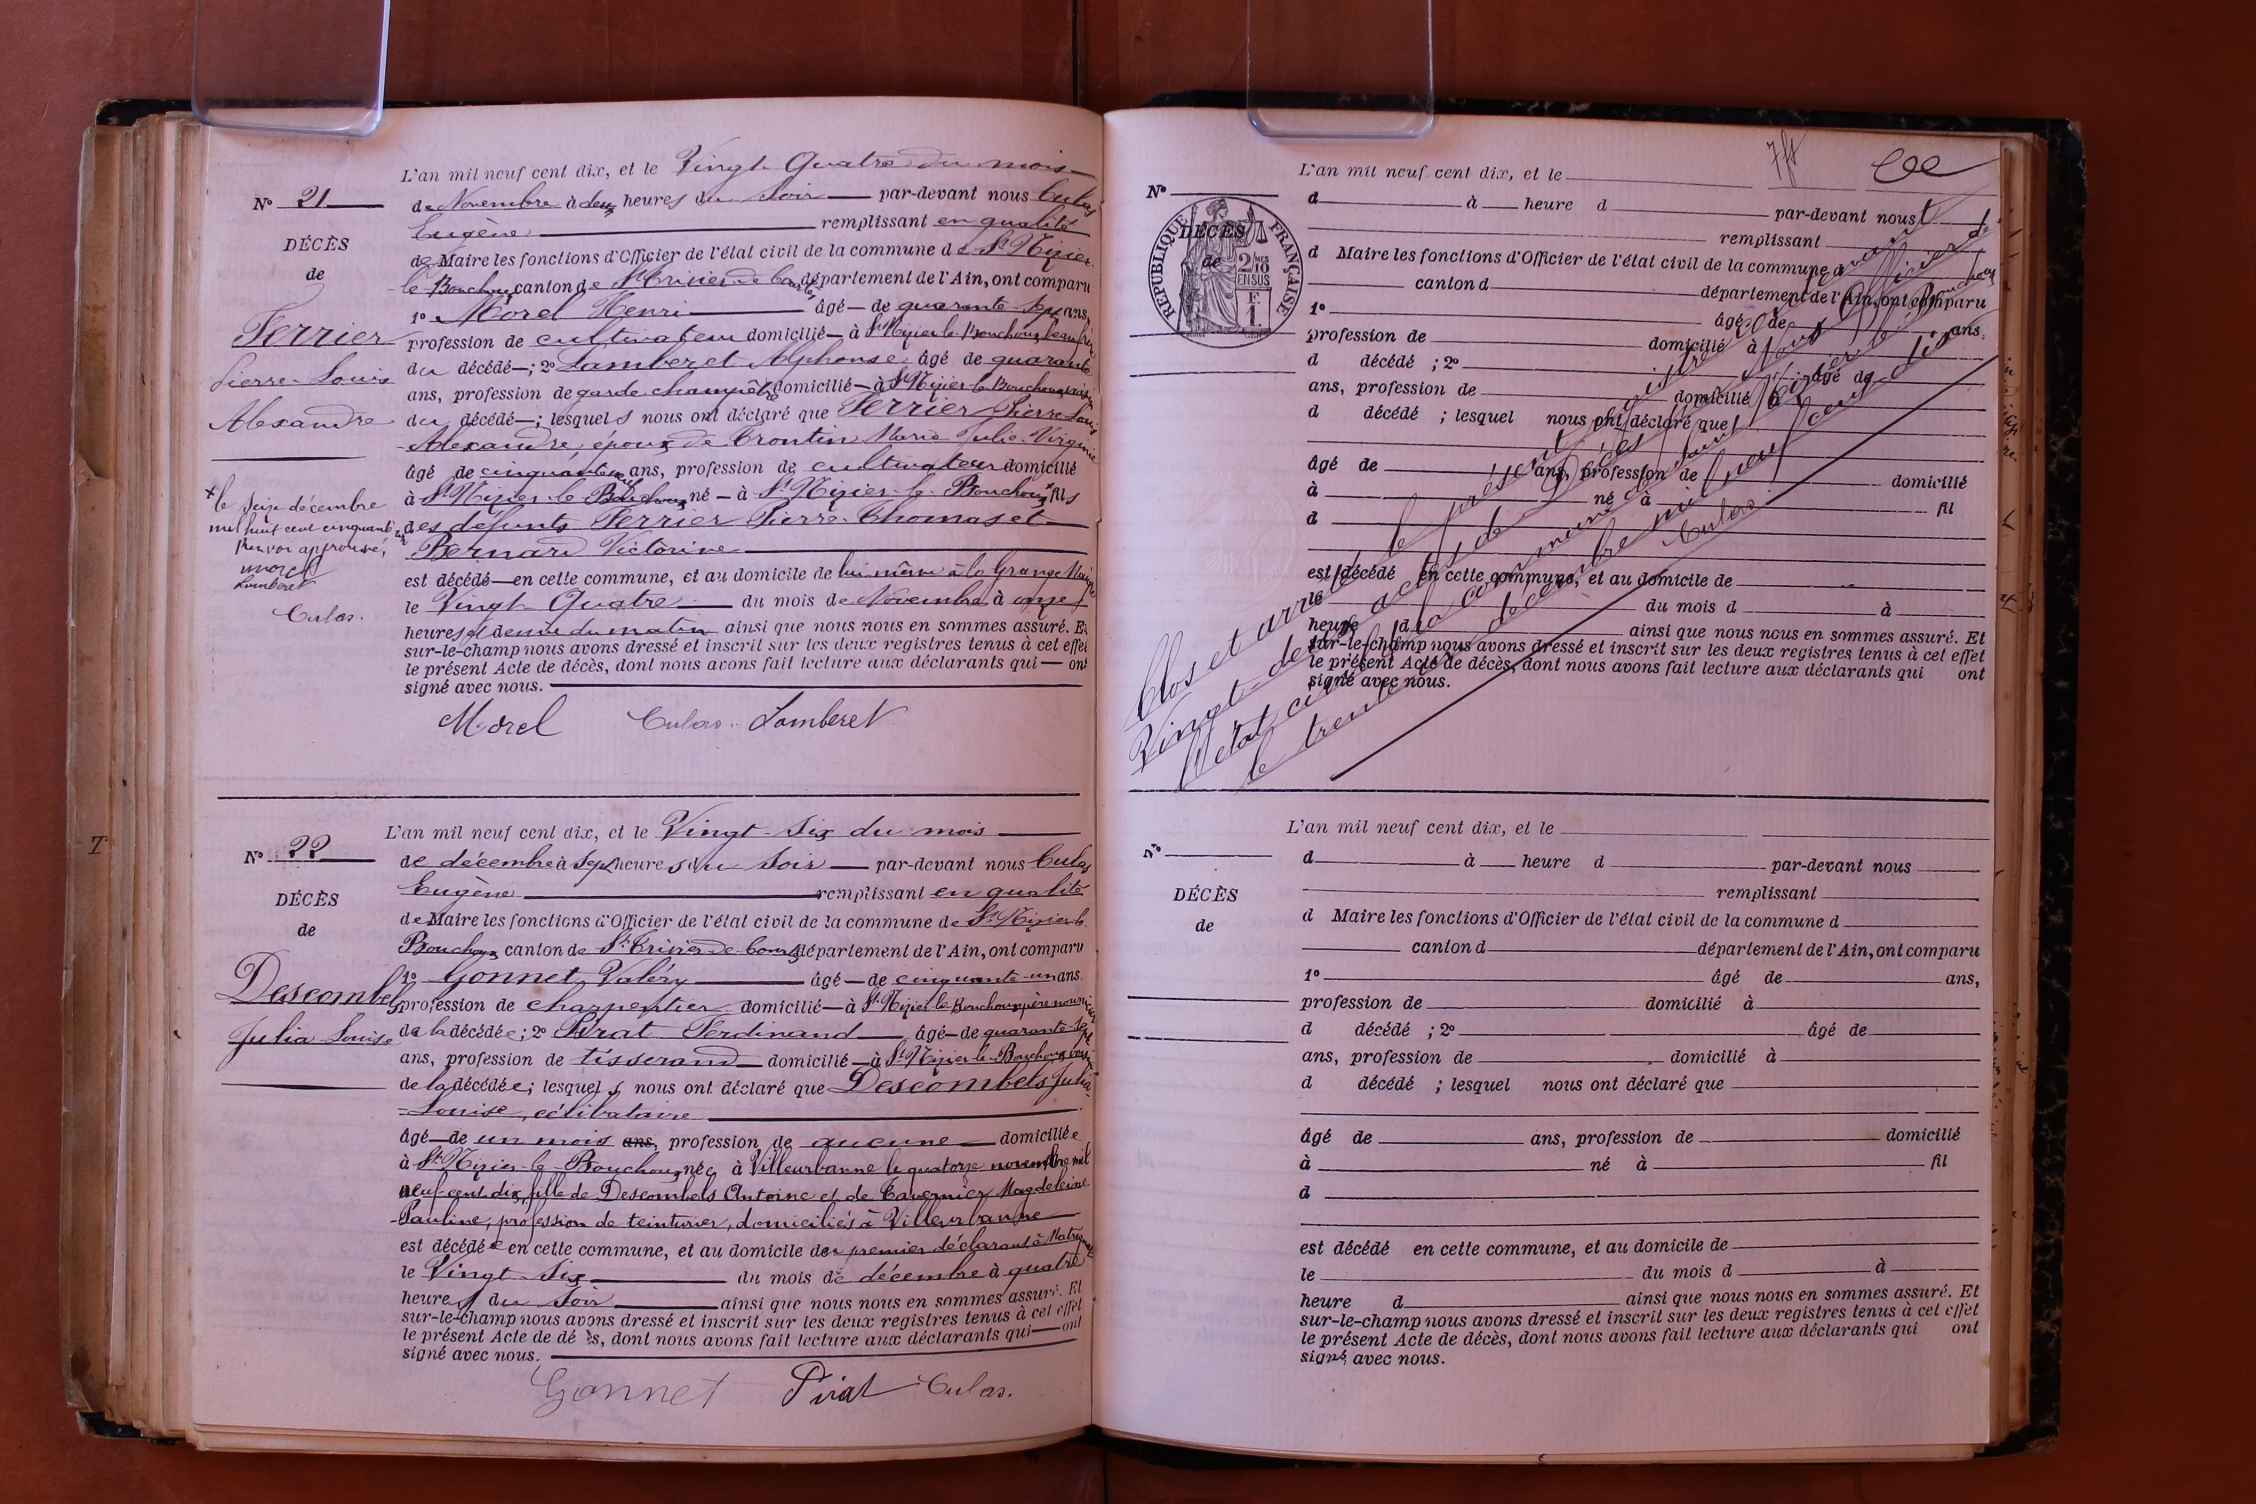 L'an mil neuf cent dix, et le Vingt Quatre du mois
N° 21
de Novembre à deux heures du Soir par-devant nous Culas
Eugène remplissant en qualité
DÉCÈS
de
de Maire les fonctions d'Officier de l'état civil de la commune de St Nizier
le Bouchoux canton de St Trivier de Courtes département de l'Ain, ont comparu
1° Morel Henri âgé de quarante sept ans,
Ferrier
Pierre Louis
Alexandre
profession de cultivateur domicilié à St Nizier le Bouchoux beau frère
du décédé ; 2° Lamberet Alphonse âgé de quarante
ans, profession de garde champêtre domicilié à St Nizier le Bouchoux voisin
du décédé ; lesquels nous ont déclaré que Ferrier Pierre Louis
Alexandre, époux de Trontin Marie Julie Virginie
âgé de cinquante ans, profession de cultivateur domicilié
à St Nizier le Bouchoux né à St Nizier le Bouchoux × fils
× le seize décembre
mil huit cent cinquante
Renvoi approuvé,
Morel
Lamberet
Culas.
des défunts Ferrier Pierre Thomas et
Bernard Victorine
est décédé en cette commune, et au domicile de lui même à la Grange
le Vingt Quatre du mois de Novembre à onze
heures et demie du matin ainsi que nous nous en sommes assuré. Et
sur-le-champ nous avons dressé et inscrit sur les deux registres tenus à cet effet
le présent Acte de décès, dont nous avons fait lecture aux déclarants qui ont
signé avec nous.
Morel Culas Lamberet
L'an mil neuf cent dix, et le Vingt Six du mois
N° 22
de décembre à sept heures du Soir par-devant nous Culas
Eugène remplissant en qualité
DÉCÈS
de
de Maire les fonctions d'Officier de l'état civil de la commune de St Nizier le
Bouchoux canton de St Trivier de Courtes département de l'Ain, ont comparu
1° Gonnet Valéry âgé de cinquante un ans.
Descombels
Julia Louise
profession de charpentier domicilié à St Nizier le Bouchoux père nourricier
de la décédée ; 2° Pirat Ferdinand âgé de quarante sept
ans, profession de tisserand domicilié à St Nizier le Bouchoux voisin
de la décédée ; lesquels nous ont déclaré que Descombels Julia
Louise, célibataire
âgé de un mois ans, profession de aucune domiciliée
à St Nizier le Bouchoux née à Villeurbanne le quatorze novembre mil
neuf cent dix, fille de Descombels Antoine et de Tavernier Magdeleine
Pauline, profession de teinturier, domiciliés à Villeurbanne
est décédée en cette commune, et au domicile du premier déclarant à
le Vingt Six du mois de décembre à quatre
heures du Soir ainsi que nous nous en sommes assuré. Et
sur-le-champ nous avons dressé et inscrit sur les deux registres tenus à cet effet
le présent Acte de décès, dont nous avons fait lecture aux déclarants qui ont
signé avec nous.
Gonnet Pirat Culas.
L'an mil neuf cent dix, et le
N°
d à heure d par-devant nous
remplissant
RÉPUBLIQUE FRANÇAISE
DÉCÈS
de
2/10 EN SUS
F. 1.
d Maire les fonctions d'Officier de l'état civil de la commune d
canton d département de l'Ain, ont comparu
1° âgé de ans.
profession de domicilié à
d décédé ; 2° âgé de
ans, profession de domicilié à
d décédé ; lesquel nous ont déclaré que
âgé de ans, profession de domicilié
à né à fil
d
est décédé en cette commune, et au domicile de
le du mois d à
heure d ainsi que nous nous en sommes assuré. Et
sur-le-champ nous avons dressé et inscrit sur les deux registres tenus à cet effet
le présent Acte de décès, dont nous avons fait lecture aux déclarants qui ont
signé avec nous.
Clos et arrêté le présent registre contenant
Vingt-deux actes de Décès par Nous Officier de
l'état civil de la commune de Saint Nizier le Bouchoux
le trente un décembre mil neuf cent dix
Culas
L'an mil neuf cent dix, et le
N°
d à heure d par-devant nous
remplissant
DÉCÈS
de
d Maire les fonctions d'Officier de l'état civil de la commune d
canton d département de l'Ain, ont comparu
1° âgé de ans,
profession de domicilié à
d décédé ; 2° âgé de
ans, profession de domicilié à
d décédé ; lesquel nous ont déclaré que
âgé de ans, profession de domicilié
à né à fil
d
est décédé en cette commune, et au domicile de
le du mois d à
heure d ainsi que nous nous en sommes assuré. Et
sur-le-champ nous avons dressé et inscrit sur les deux registres tenus à cet effet
le présent Acte de décès, dont nous avons fait lecture aux déclarants qui ont
signé avec nous.